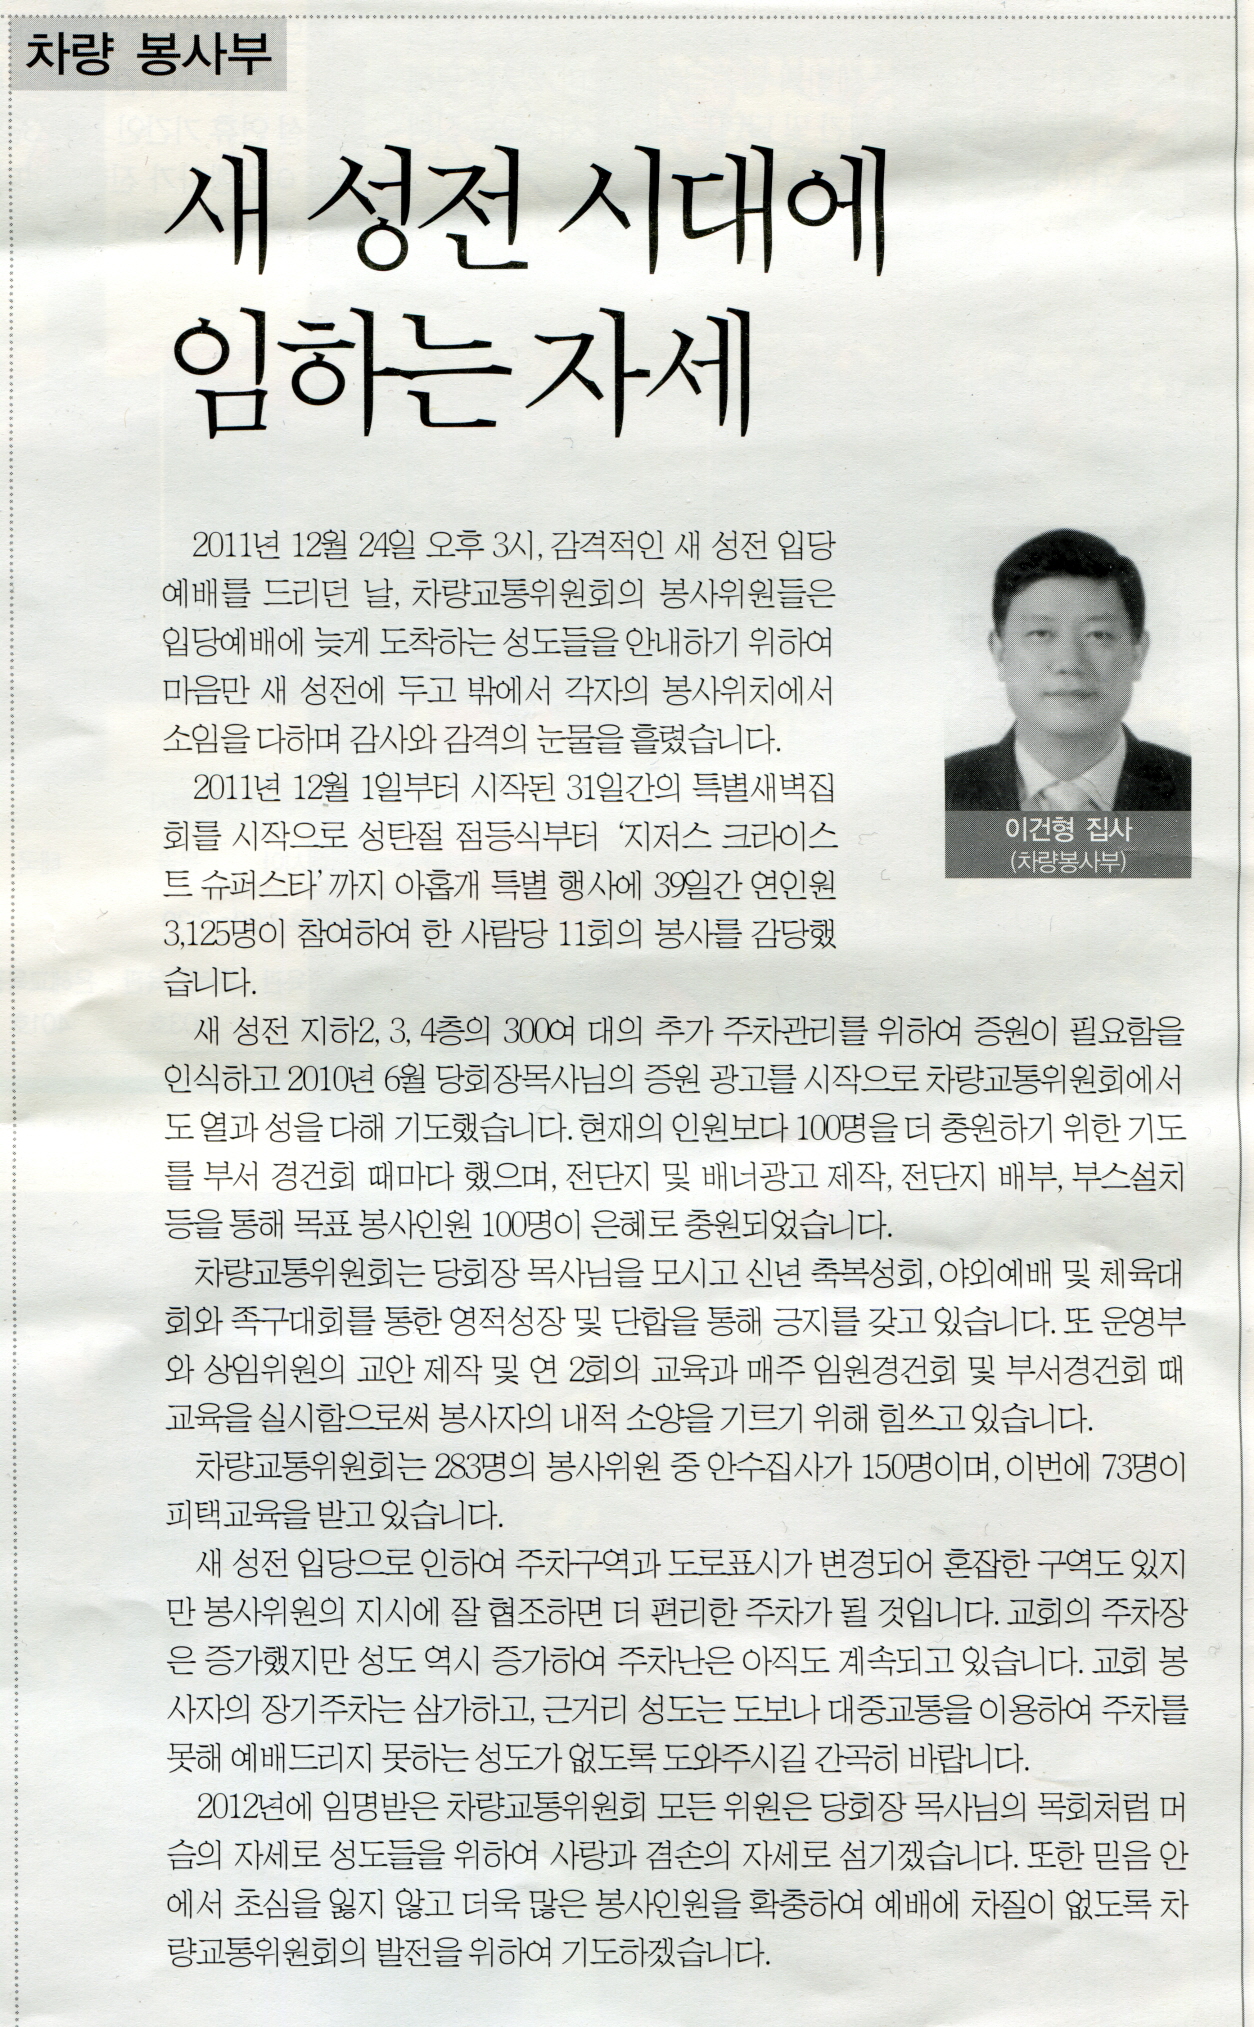 차량 봉사부
새 성전 시대에
임하는 자세
2011년 12월 24일 오후 3시, 감격적인 새 성전 입당
예배를 드리던 날, 차량교통위원회의 봉사위원들은
입당예배에 늦게 도착하는 성도들을 안내하기 위하여
마음만 새 성전에 두고 밖에서 각자의 봉사위치에서
소임을 다하며 감사와 감격의 눈물을 흘렸습니다.
2011년 12월 1일부터 시작된 31일간의 특별새벽집
회를 시작으로 성탄절 점등식부터 ‘지저스 크라이스
트 슈퍼스타’까지 아홉개 특별 행사에 39일간 연인원
3,125명이 참여하여 한 사람당 11회의 봉사를 감당했
습니다.
이건형 집사
(차량봉사부)
새 성전 지하2, 3, 4층의 300여 대의 추가 주차관리를 위하여 증원이 필요함을
인식하고 2010년 6월 당회장목사님의 증원 광고를 시작으로 차량교통위원회에서
도 열과 성을 다해 기도했습니다. 현재의 인원보다 100명을 더 충원하기 위한 기도
를 부서 경건회 때마다 했으며, 전단지 및 배너광고 제작, 전단지 배부, 부스설치
등을 통해 목표 봉사인원 100명이 은혜로 충원되었습니다.
차량교통위원회는 당회장 목사님을 모시고 신년 축복성회, 야외예배 및 체육대
회와 족구대회를 통한 영적성장 및 단합을 통해 긍지를 갖고 있습니다. 또 운영부
와 상임위원의 교안 제작 및 연 2회의 교육과 매주 임원경건회 및 부서경건회 때
교육을 실시함으로써 봉사자의 내적 소양을 기르기 위해 힘쓰고 있습니다.
차량교통위원회는 283명의 봉사위원 중 안수집사가 150명이며, 이번에 73명이
피택교육을 받고 있습니다.
새 성전 입당으로 인하여 주차구역과 도로표시가 변경되어 혼잡한 구역도 있지
만 봉사위원의 지시에 잘 협조하면 더 편리한 주차가 될 것입니다. 교회의 주차장
은 증가했지만 성도 역시 증가하여 주차난은 아직도 계속되고 있습니다. 교회 봉
사자의 장기주차는 삼가하고, 근거리 성도는 도보나 대중교통을 이용하여 주차를
못해 예배드리지 못하는 성도가 없도록 도와주시길 간곡히 바랍니다.
2012년에 임명받은 차량교통위원회 모든 위원은 당회장 목사님의 목회처럼 머
슴의 자세로 성도들을 위하여 사랑과 겸손의 자세로 섬기겠습니다. 또한 믿음 안
에서 초심을 잃지 않고 더욱 많은 봉사인원을 확충하여 예배에 차질이 없도록 차
량교통위원회의 발전을 위하여 기도하겠습니다.